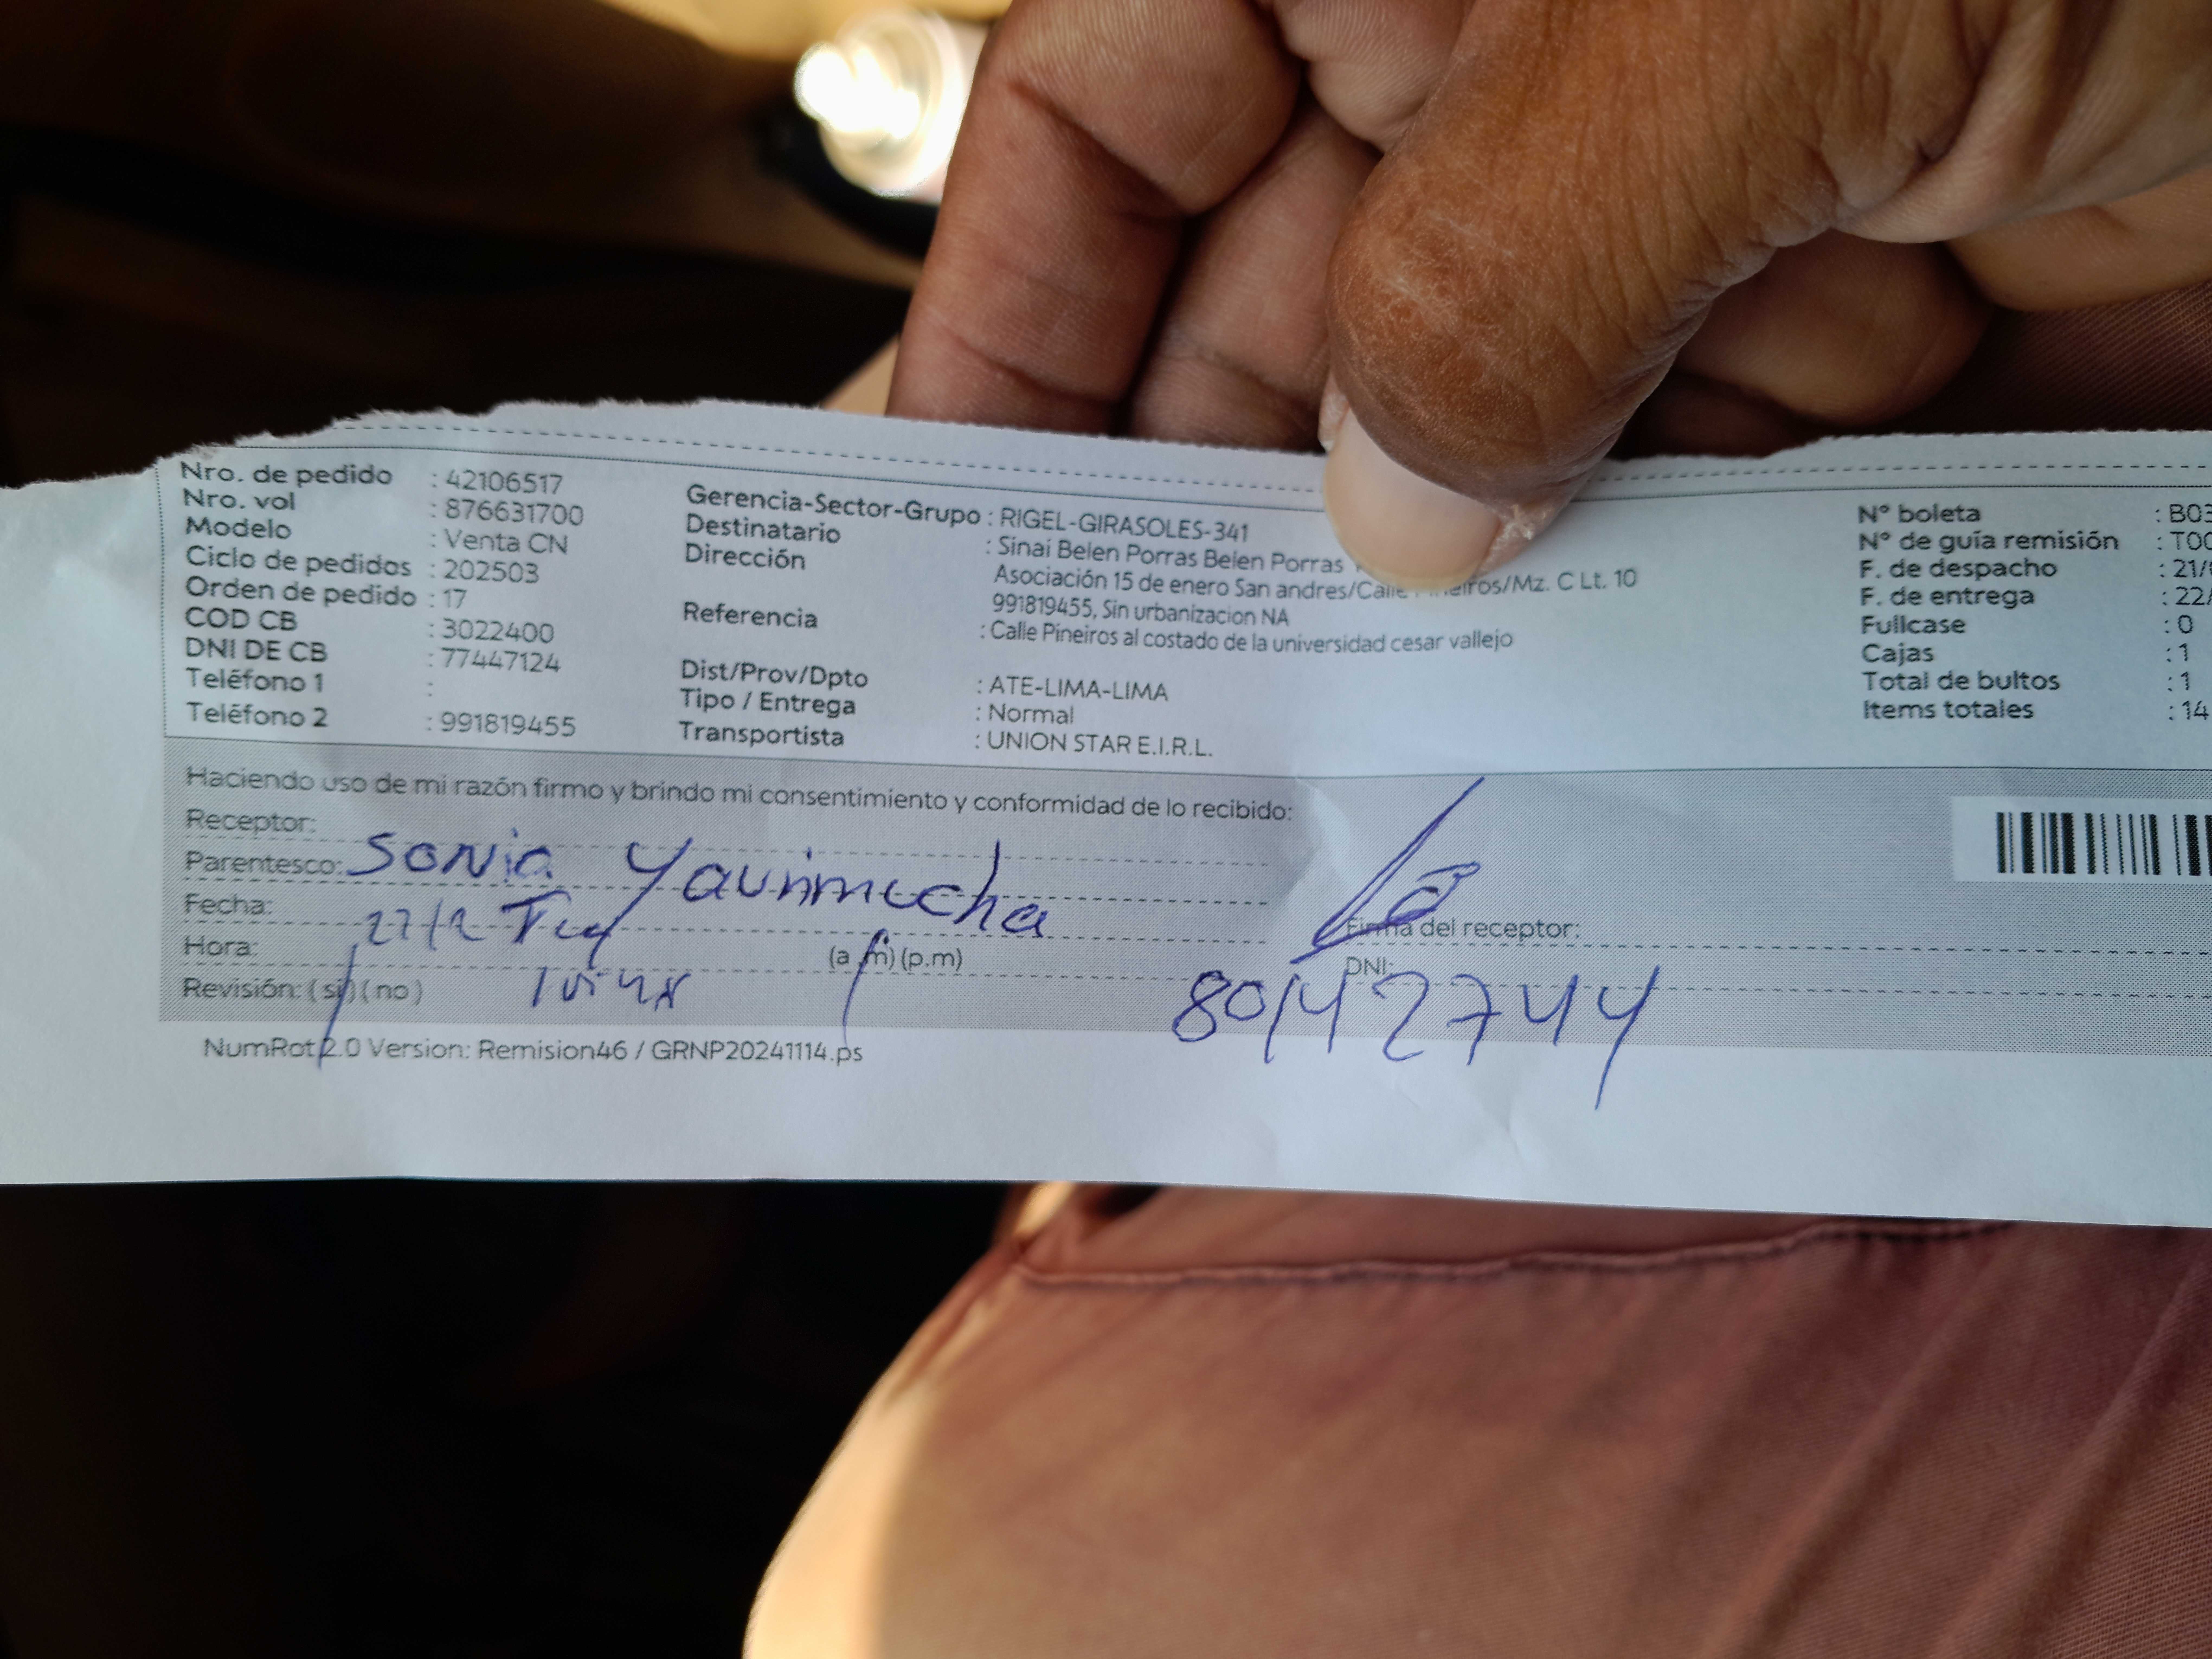 Nro. de pedido : 42106517
Nro. vol : 876631700
Modelo : Venta CN
Ciclo de pedidos : 202503
Orden de pedido : 17
COD CB : 3022400
DNI DE CB : 77447124
Teléfono 1 :
Teléfono 2 : 991819455
Gerencia-Sector-Grupo : RIGEL-GIRASOLES-341
Destinatario : Sinai Belen Porras Belen Porras
Dirección Asociación 15 de enero San andres/Calle /Mz. C Lt. 10
991819455, Sin urbanizacion NA
Referencia : Calle Pineiros al costado de la universidad cesar vallejo
Dist/Prov/Dpto : ATE-LIMA-LIMA
Tipo / Entrega : Normal
Transportista : UNION STAR E.I.R.L.
N° boleta : B03
N° de guía remisión : T00
F. de despacho : 21/
F. de entrega : 22/
Fullcase : 0
Cajas : 1
Total de bultos : 1
Items totales : 14
Haciendo uso de mi razón firmo y brindo mi consentimiento y conformidad de lo recibido:
Receptor:
Parentesco: Sonia Yaurimucha
Fecha:
Hora: (a.m) (p.m)
Revisión: (si) (no)
Firma del receptor:
DNI:
80142744
NumRot 2.0 Version: Remision46 / GRNP20241114.ps